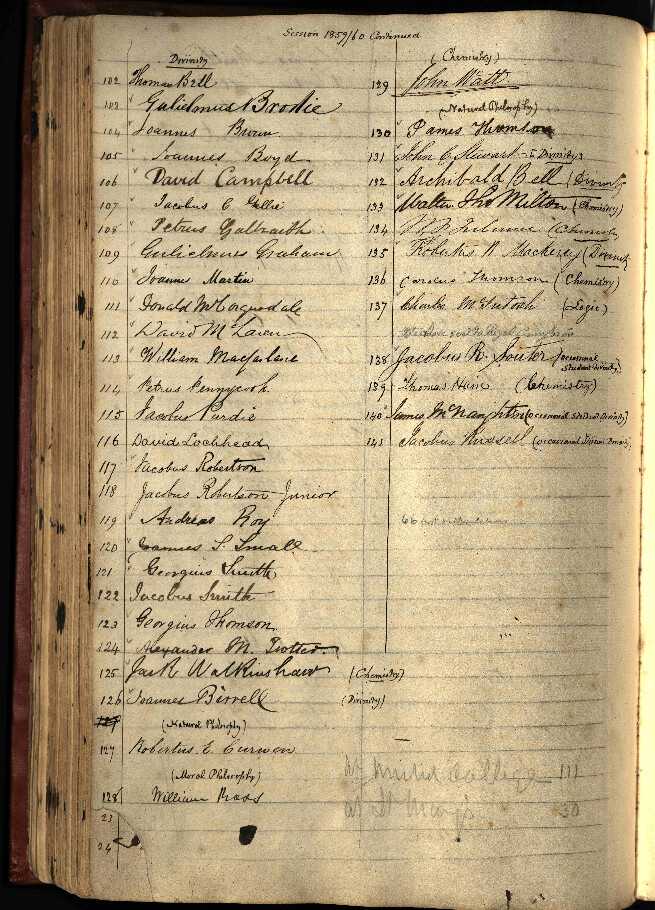 Session 1859/60 Continued
Divinity
102 Thomas Bell
103 Gulielmus Brodie
104 Joannes Brown
105 Joannes Boyd
106 David Campbell
107 Jacobus C Gellie
108 Petrus Galbraith
109 Gulielmus Graham
110 Joannes Martin
111 Donald McCorquodale
112 David McLaren
113 William Macfarlane
114 Petrus Pennycook
115 Jacobus Purdie
116 David Lochhead
117 Jacobus Robertson
118 Jacobus Robertson Junior
119 Andreas Roy
120 James S. Small
121 Georgius Smith
122 Jacobus Smith
123 Georgius Thomson
124 Alexander M. Trotter
125 Jack Walkinshaw (Chemistry)
126 Joannes Birrell (Divinity)
127
(Natural Philosophy)
127 Robertus E Curwen
(Moral Philosophy)
128 William Ross
23
24
(Chemistry)
129 John Watt
(Natural Philosophy)
130 James Thomson
131 John C Stewart - (Divinity)
132 Archibald Bell (Divinity)
133 Walter Tho Milton (Chemistry)
134 (Chemistry)
135 Robertus W Mackenzy (Divinity
136 Thomson (Chemistry)
137 Charles McIntosh (Logic)
138 Jacobus R. Souter (occasional
Student Divinity)
139 Thomas (Chemistry)
140 James McNaughton (occasional Student Divinity)
141 Jacobus Russell (occasional Divinity)
66
at United College 111
at St Mary's 30